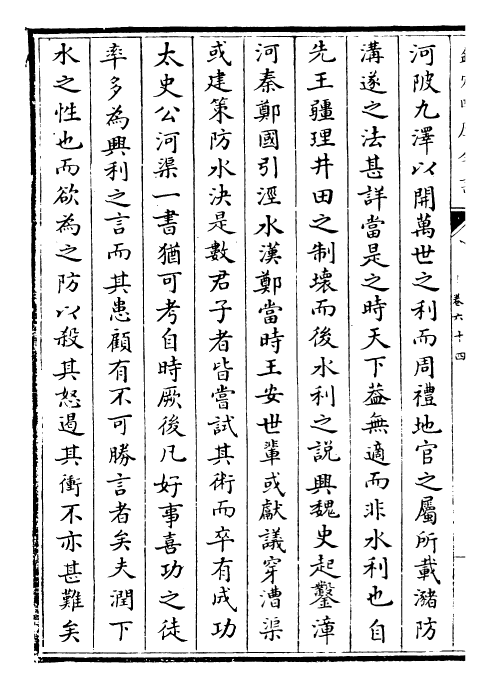 河陂九澤以開萬世之利而周禮地官之屬所載瀦防
溝遂之法甚詳當是之時天下蓋無適而非水利也自
先王疆理井田之制壞而後水利之說興魏史起鑿漳
河秦鄭國引涇水漢鄭當時王安世輩或獻議穿漕渠
或建策防水決是數君子者皆嘗試其術而卒有成功
太史公河渠一書猶可考自時厥後凡好事喜功之徒
率多為興利之言而其患顧有不可勝言者矣夫潤下
水之性也而欲為之防以殺其怒遏其衝不亦甚難矣
卷六十四